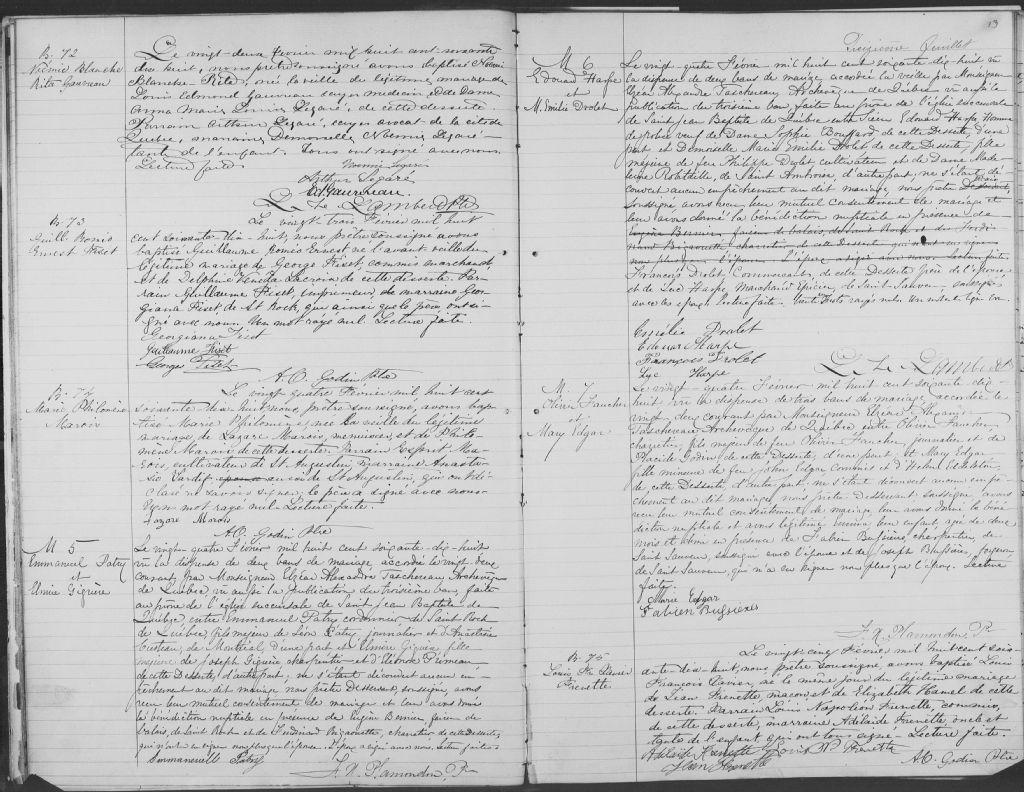 B. 72
Noémie Blanche
Rita Gauvreau
Le vingt-deux Février mil huit cent soixante
dix huit, nous prêtre soussigné avons baptisé Noémi
Blanche Rita, née la veille du légitime mariage de
Louis Edmond Gauvreau écuyer médecin et de Dame
Anna Maria Louise Légaré, de cette desserte
Parrain Arthur Légaré, écuyer avocat de la cité de
Québec, marraine Demoiselle Noémie Légaré
tante de l'enfant. Tous ont signé avec nous.
Lecture faite.
Noémie Légaré
Arthur Légaré
Ed. Gauvreau.
F. E. Lambert Ptre
B. 73
Guill. Roméo
Ernest Fiset
Le vingt trois Février mil huit
cent soixante-dix-huit, nous prêtre soussigné avons
baptisé Guillaume Roméo Ernest né l'avant veille du
légitime mariage de George Fiset, commis marchand,
et de Delphine Venéda Lacroix de cette desserte. Par-
rain Guillaume Fiset, entrepreneur, marraine Geor-
giana Fiset, de St Roch, qui ainsi que le père ont si-
gné avec nous. Un mot rayé nul. Lecture faite.
Georgiana Fiset
Guillaume Fiset
Georges Fiset
A. O. Godin Ptre
B. 74
Marie Philomène
Marois
Le vingt quatre Février mil huit cent
soixante dix huit nous prêtre soussigné, avons bap-
tisé Marie Philomène, née la veille du légitime
mariage de Lazare Marois, menuisier, et de Philo-
mène Marois de cette desserte. Parrain Esprit Ma-
rois, cultivateur de St Augustin, marraine Anasta-
sie Tardif aussi de St Augustin, qui ont dé-
claré ne savoir signer, le père a signé avec nous.
Un mot rayé nul. Lecture faite.
Lazare Marois
A. O. Godin Ptre
M 5
Emmanuel Patry
et
Elmire Giguère
Le vingt-quatre Février mil huit cent soixante-dix-huit
vu la dispense de deux bans de mariage, accordée le vingt-deux
courant par Monseigneur Elzéar Alexandre Taschereau Archevêque
de Québec, vu aussi la publication du troisième ban, faite
au prône de l'église succursale de Saint Jean Baptiste de
Québec entre Emmanuel Patry cordonnier, de Saint Roch
de Québec, fils majeur de Léon Patry journalier et d'Anastasie
de Montréal, d'une part et Elmire Giguère fille
majeure de Joseph Giguère charpentier et d'Eléonore Primeau
de cette Desserte, d'autre part; ne s'étant découvert aucun em-
pêchement au dit mariage nous prêtre Desservant soussigné, avons
reçu leur mutuel consentement de mariage et leur avons donné
la bénédiction nuptiale en présence de Eugène Bernier faiseur de
balais, de Saint Roch et de Ferdinand Brigaouette, charretier de cette desserte,
qui n'ont su signer non plus que l'épouse. L'époux a signé avec nous. Lecture faite.
Emmanuelle Patry
F. X. Plamondon, Pr
13
Dixième feuillet
M 6
Edouard Harpe
et
M. Emilie Drolet
Le vingt-quatre Février mil huit cent soixante dix-huit vu
la dispense de deux bans de mariage, accordée la veille par Monseigneur
Elzéar Alexandre Taschereau, Archevêque de Québec vu aussi la
publication du troisième ban faite au prône de l'église succursale
de Saint Jean Baptiste de Québec entre Sieur Edouard Harpe, Homme
de police veuf de Dame Sophie Bouffard de cette Desserte, d'une
part et Demoiselle Marie Emilie Drolet de cette Desserte, fille
majeure de feu Philippe Drolet cultivateur et de Dame Made-
leine Robitaille de Saint Ambroise, d'autre part, ne s'étant dé-
couvert aucun empêchement au dit mariage, nous prêtre Desservant,
soussigné avons reçu leur mutuel consentement de mariage et
leur avons donné la bénédiction nuptiale en présence de
Eugène Bernier, faiseur de balais, de Saint Roch et de Ferdi-
nand Brigaouette, charretier de cette Desserte qui n'ont su signer
non plus que l'épouse. L'époux a signé avec nous. Lecture faite.
François Drolet, Commerçant, de cette Desserte frère de l'épouse
et de Luc Harpe, Marchand épicier, de Saint Sauveur,
avec les époux. Lecture faite.
Emélie Drolet
Edouar Harpe
François Drolet
Luc Harpe
F. E. Lambert Ptre
M. 7
Olivier Faucher
et
Mary Edgar
Le vingt-quatre Février mil huit cent soixante dix-
huit vu la dispense de trois bans de mariage accordée le
vingt-deux courant par Monseigneur Elzéar Alexandre
Taschereau Archevêque de Québec entre Olivier Faucher
charretier, fils majeur de feu Olivier Faucher journalier et de
Placide Godin de cette Desserte, d'une part, et Mary Edgar
fille mineure de feu John Edgar Commis et d'Helen
de cette Desserte, d'autre part; ne s'étant découvert aucun em-
pêchement au dit mariage, nous prêtre Desservant soussigné avons
reçu leur mutuel consentement de mariage, leur avons donné la béné-
diction nuptiale et avons légitimé leur enfant, agé de deux
mois et demi en présence de Fabien Bussières, charpentier, de
Saint Sauveur, soussigné avec l'épouse et de Joseph Bussières, forgeron,
de Saint Sauveur, qui n'a su signer non plus que l'époux. Lecture
faite.
Marie Edgar
Fabien Bussières
F. X. Plamondon Pr
B. 75
Louis Fr. Xavier
Frenette.
Le vingt cinq Février mil huit cent soix-
ante-dix-huit, nous prêtre soussigné, avons baptisé Louis
François Xavier, né le même jour du légitime mariage
de Jean Frenette, maçon et de Elizabeth Hamel de cette
desserte. Parrain Louis Napoléon Frenette, commis,
de cette desserte, marraine Adélaïde Frenette, oncle et
tante de l'enfant qui ont tous signé. Lecture faite.
Adelaide Frenette Louis N. Frenette
Jean Frenette
A. O. Godin Ptre